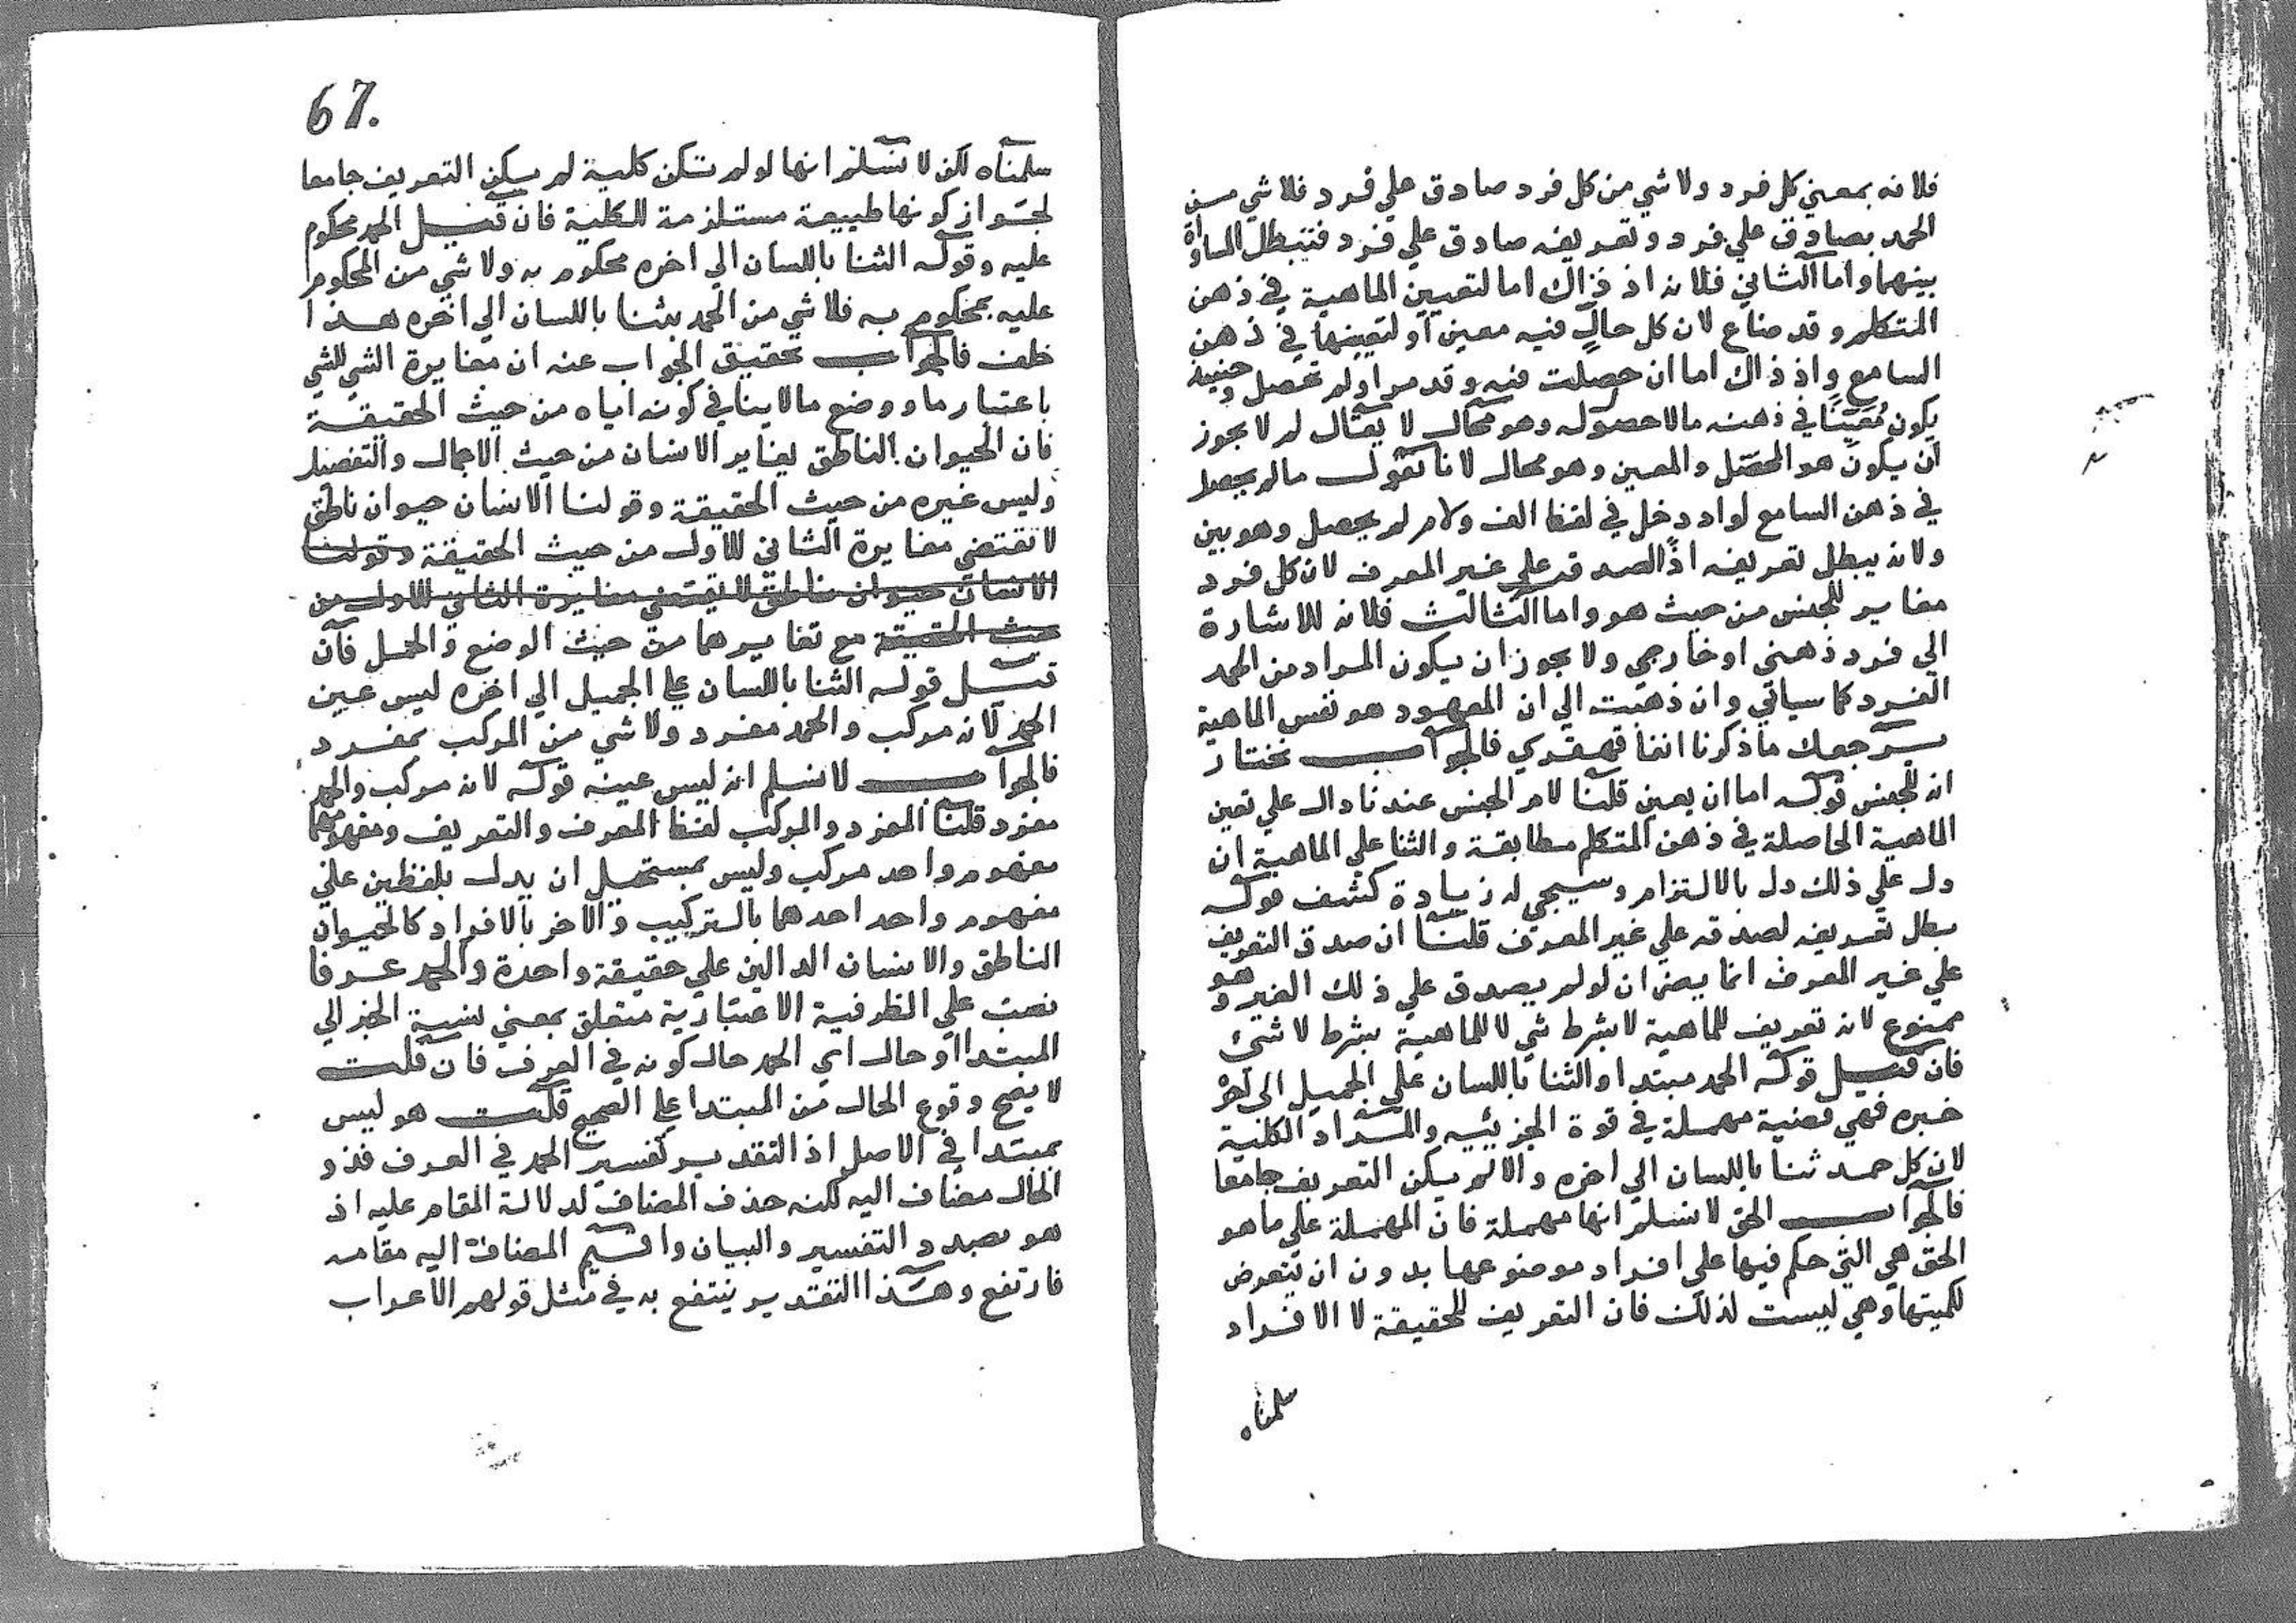 فلانه بمعني كل فرد ولا شي من كل فرد صادق علي فرد فلا شي من
الحمد بصادق علي فرد وتعريفه صادق علي فرد فتبطل المساواة
بينهما واما الثاني فلانه اذ ذاك اما لتعيين الماهية في ذهن
المتكلم وقد ضاع لان كل حال فيه معين او لتعينها في ذهن
السامع واذ ذاك اما ان حصلت فيه وقد مر او لم تحصل وحينيذ
يكون مُعَيِّنًا في ذهنه مالا حصول له وهو محال لا يقال لم لا يجوز
ان يكون هو المحصّل والمعين وهو محال لانا نقول مالم يحصل
في ذهن السامع لو ادخل في لفظ الف ولام لم يحصل وهو بين
ولانه يبطل تعريفه اذًا لصدقه علي غير المعرف لان كل فرد
مغاير للجنس من حيث هو واما الثالث فلانه للاشارة
الي فرد ذهني او خارجي ولا يجوز ان يكون المراد من الحمد
الفرد كما سياتي وان ذهبت الي ان المعهود هو نفس الماهية
يرجعك ما ذكرنا انفا قهقري فالجواب نختار
انه للجنس قوله اما ان يعين قلنا لام الجنس عندنا دال علي تعين
الماهية الحاصلة في ذهن المتكلم مطابقة والثنا علي الماهية ان
دل علي ذلك دل بالالتزام وسيجي له زيادة كشف قوله
بطل تعريفه لصدقه علي غير المعرف قلنا ان صدق التعريف
علي غير المعرف انما يضر ان لو لم يصدق علي ذلك الغير وهو
ممنوع لانه تعريف للماهية لا بشرط شي لا للماهية بشرط لا شئ
فان قيل قوله الحمد مبتدا والثنا باللسان علي الجميل الى اخره
خبره فهي قضية مهملة في قوة الجزئيه والمراد الكلية
لان كل حمد ثنا باللسان الي اخره والا لم يكن التعريف جامعا
فالجواب الحق لا نسلم انها مهملة فان المهملة علي ما هو
الحق هي التي حكم فيها علي افراد موضوعها بدون ان تتعرض
لكميتها وهي ليست لذلك فان التعريف للحقيقة لا الافراد
سلمناه
67.
سلمناه لكن لا نسلم انها لو لم تكن كلية لم يكن التعريف جامعا
لجواز كونها طبيعة مستلزمة للكلية فان قيل الحمد محكوم
عليه وقوله الثنا باللسان الي اخره محكوم به ولا شي من المحكوم
عليه بمحكوم به فلا شي من الحمد بثنا باللسان الي اخره هذا
خلف فالجواب تحقيق الجواب عنه ان مغايرة الشي للشي
باعتبار ما ووضع ما لا ينافي كونه اياه من حيث الحقيقة
فان الحيوان الناطق يغاير الانسان من حيث الاجمال والتفصيل
وليس غيره من حيث الحقيقة وقولنا الانسان حيوان ناطق
لا تقتضي مغايرة الثاني للاول من حيث الحقيقة وقولنا
الانسان حيوان ناطق لا يقتضي مغايرة الثاني للاول من
حيث الحقيقة مع تغايرهما من حيث الوضع والحمل فان
قيل قوله الثنا باللسان علي الجميل الي اخره ليس عين
الحمد لانه مركب والحمد مفرد ولا شي من المركب بمفرد
فالجواب لا نسلم انه ليس عينه قوله لانه مركب والحمد
مفرد قلنا المفرد والمركب لفظ المعرف والتعريف ومفهومهما
مفهوم واحد مركب وليس بمستحيل ان يدل بلفظين علي
مفهوم واحد احدهما بالتركيب والاخر بالافراد كالحيوان
الناطق والانسان الدالين علي حقيقة واحدة والحمد عرفا
نصب علي الظرفية الاعتبارية متعلق بمعني نسبة الخبر الي
المبتدا او حال اي الحمد حال كونه في العرف فان قلت
لا يصح وقوع الحال من المبتدا علي الصحيح قلت هو ليس
بمبتدا في الاصل اذ التقدير تفسير الحمد في العرف فذو
الحال مضاف اليه لكنه حذف المضاف لدلالة المقام عليه اذ
هو بصدد التفسير والبيان واقيم المضاف اليه مقامه
فارتفع وهذا التقدير ينتفع به في مثل قولهم الاعراب